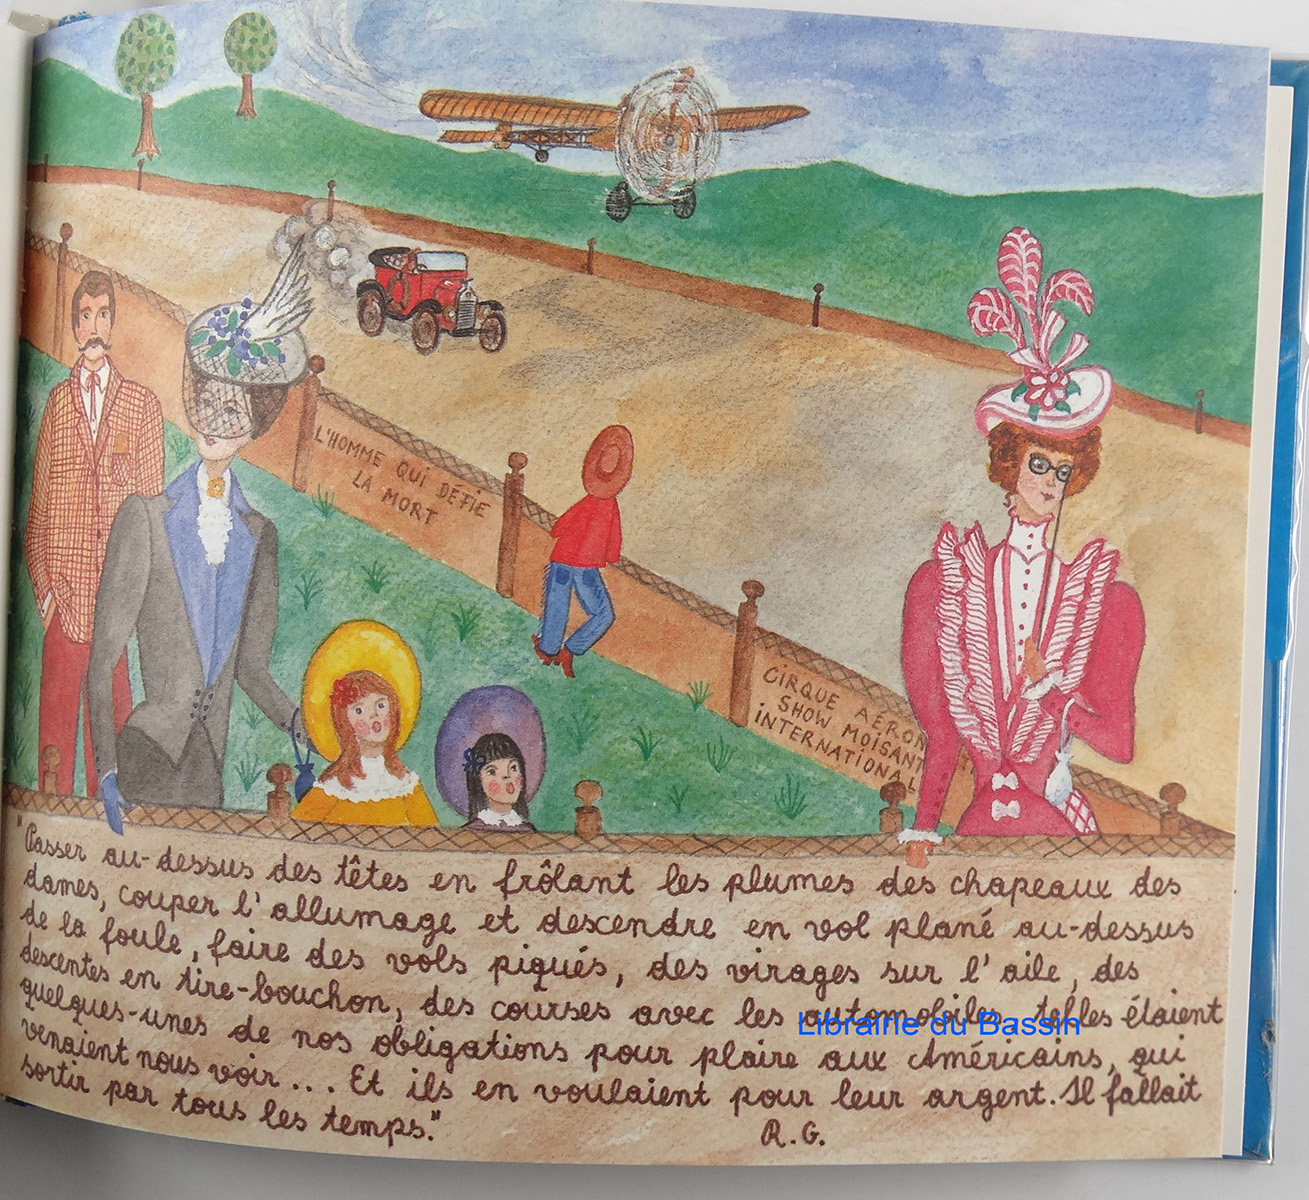 L'HOMME QUI DÉFIE
LA MORT
CIRQUE AÉRON
SHOW MOISANT
INTERNATIONAL
"Passer au-dessus des têtes en frôlant les plumes des chapeaux des
dames, couper l'allumage et descendre en vol plané au-dessus
de la foule, faire des vols piqués, des virages sur l'aile, des
descentes en tire-bouchon, des courses avec les automobiles, telles étaient
quelques-unes de nos obligations pour plaire aux Américains, qui
venaient nous voir... Et ils en voulaient pour leur argent. Il fallait
sortir par tous les temps."
R.G.
Librairie du Bassin